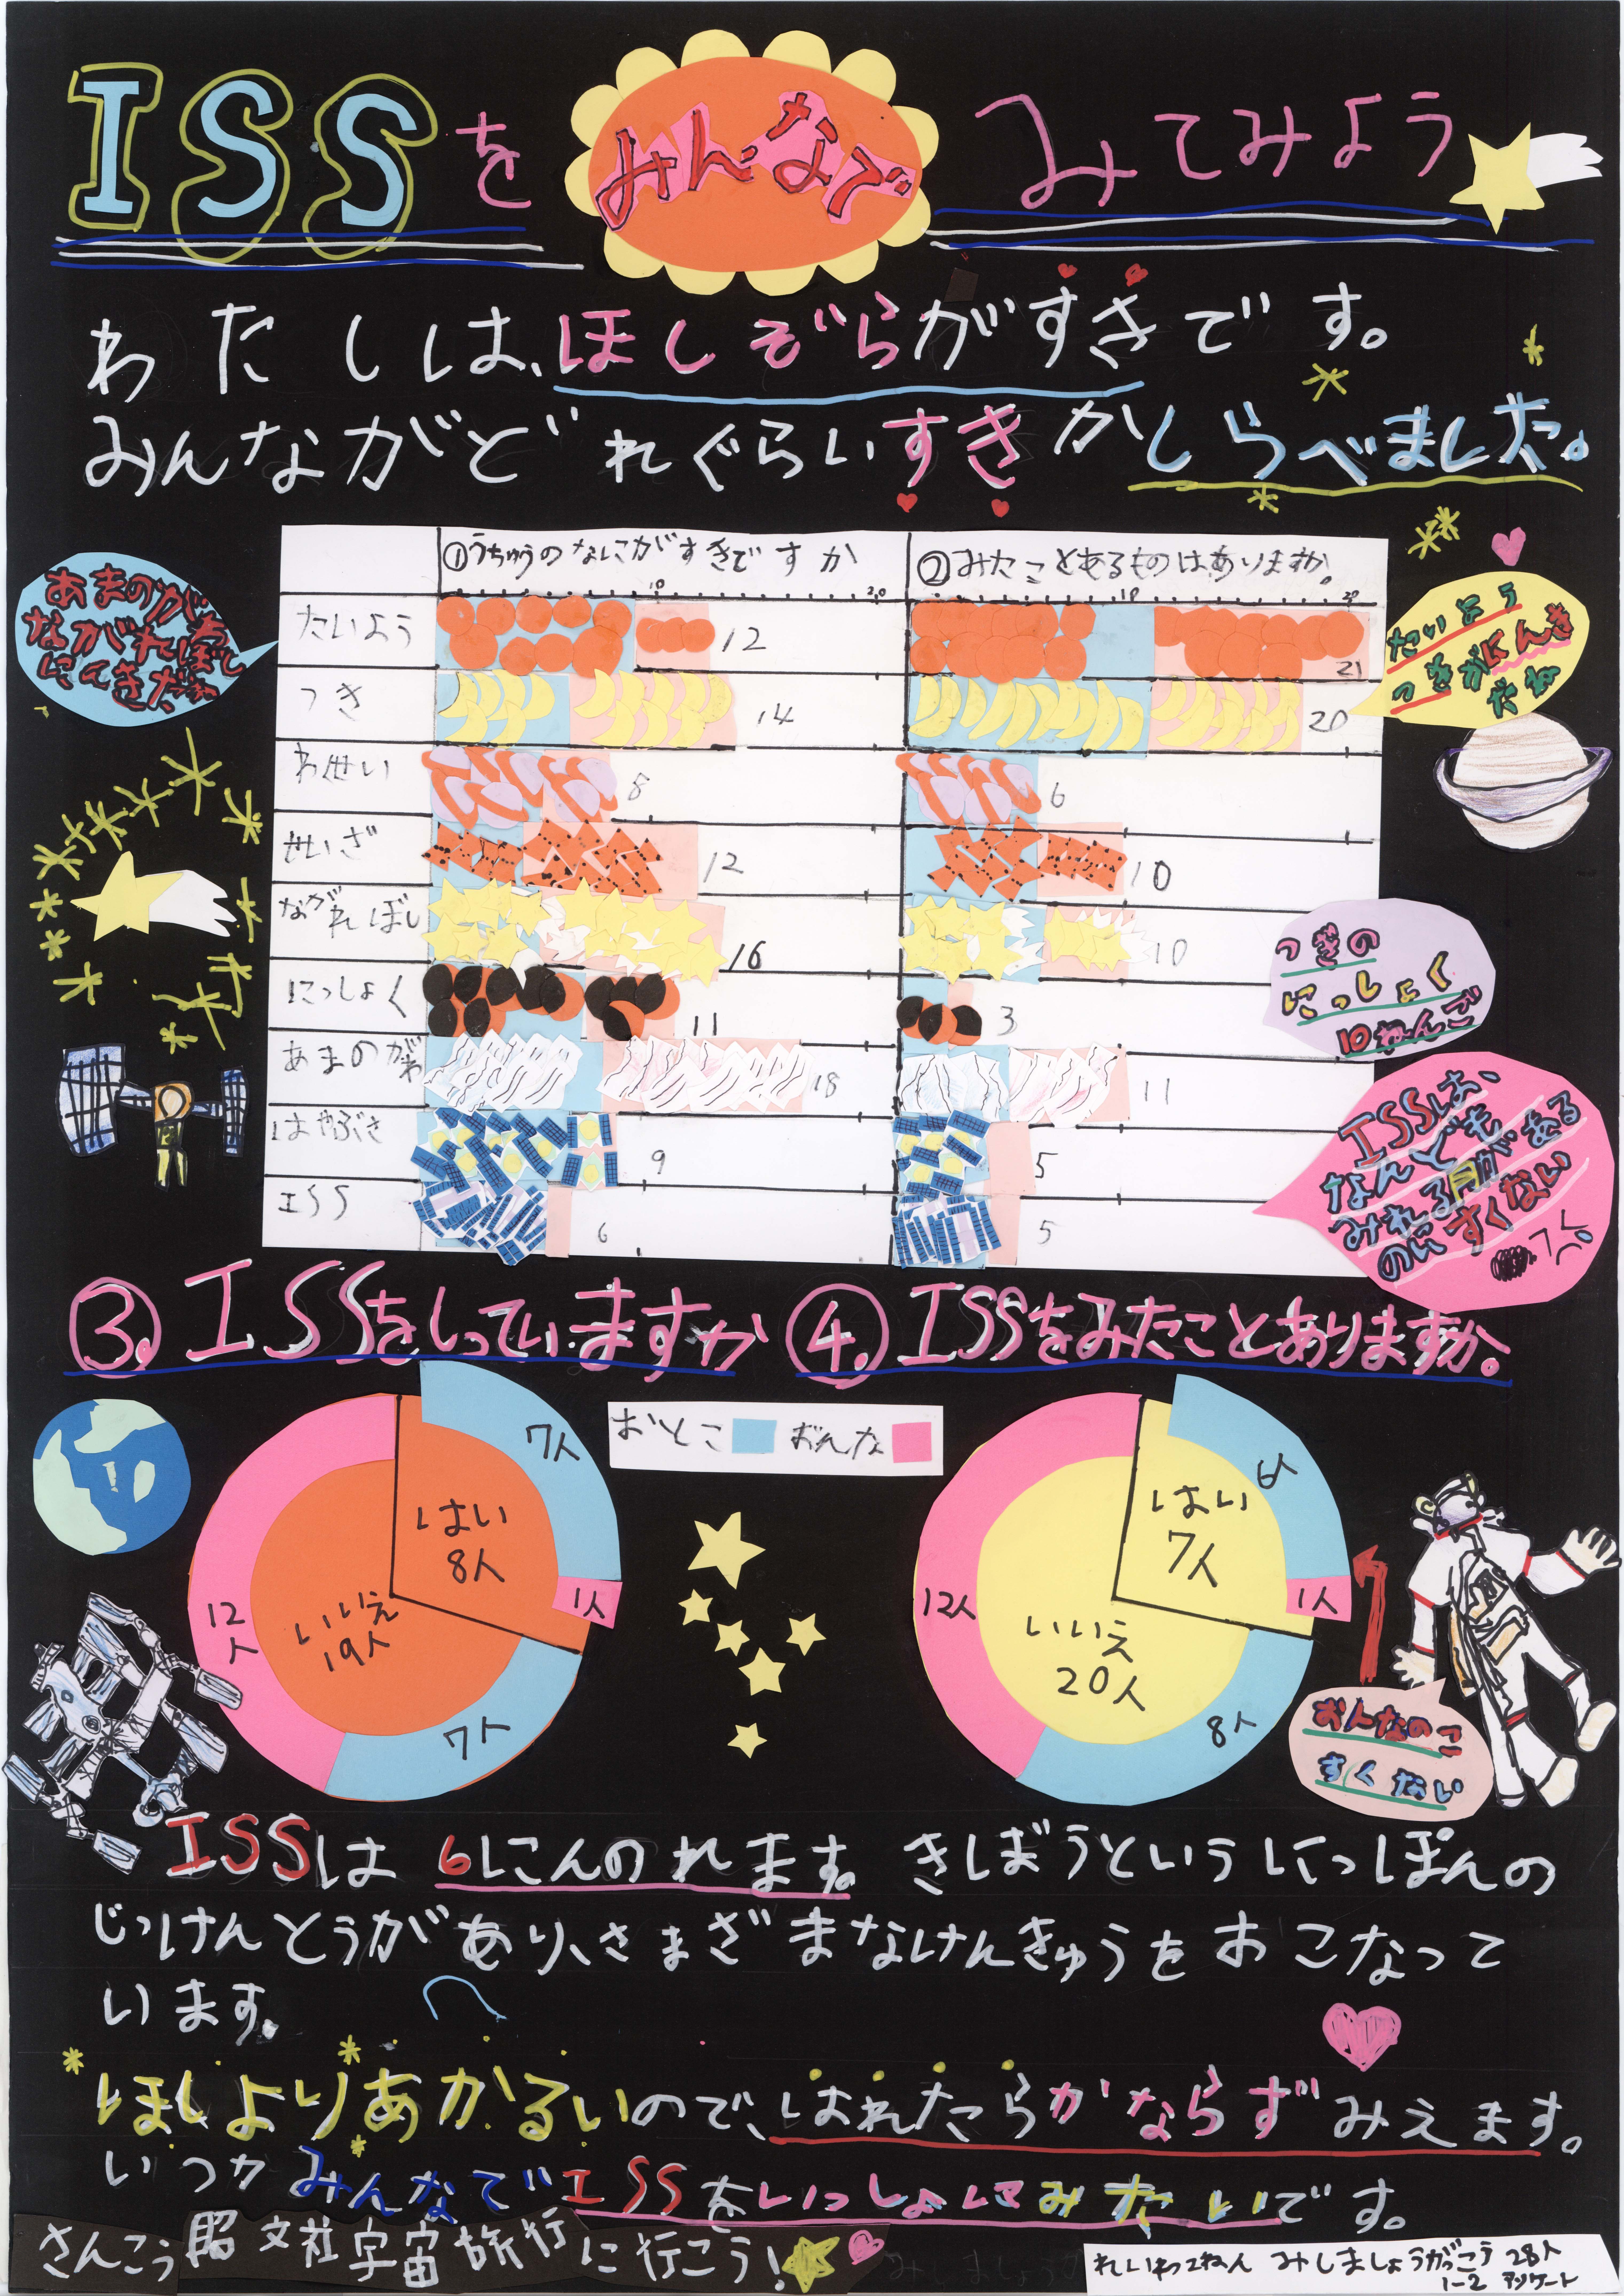 ISSをみんなでみてみよう
わたしは、ほしぞらがすきです。
みんながどれぐらいすきかしらべました。
①うちゅうのなにがすきですか
②みたことあるものはありますか。
10 20
10 20
たいよう 12 21
つき 14 20
わくせい 8 6
せいざ 12 10
ながれぼし 16 10
にっしょく 11 3
あまのがわ 18 11
はやぶさ 9 5
ISS 6 5
あまのがわ
ながれぼし
にんきだね
たいよう
つきがにんき
だね
つぎの
にっしょく
10ねんご
ISSは、
なんども
みれる月がある
のにすくない
③.ISSをしっていますか
④.ISSをみたことありますか。
おとこ おんな
7人
はい
8人
1人
いいえ
19人
12人
7人
6人
はい
7人
1人
いいえ
20人
12人
8人
おんなのこ
すくない
ISSは6にんのれます。きぼうというにっぽんの
じっけんとうがあり、さまざまなけんきゅうをおこなって
います。
ほしよりあかるいので、はれたらかならずみえます。
いつかみんなでISSをいっしょにみたいです。
さんこう 昭文社宇宙旅行に行こう!
れいわ2ねん みしましょうがっこう 28人
1-2 アンケート